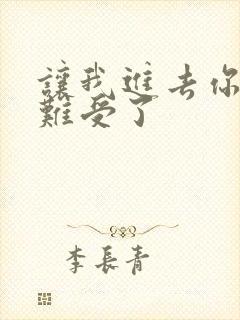 讓我進去你
難受了
李長青